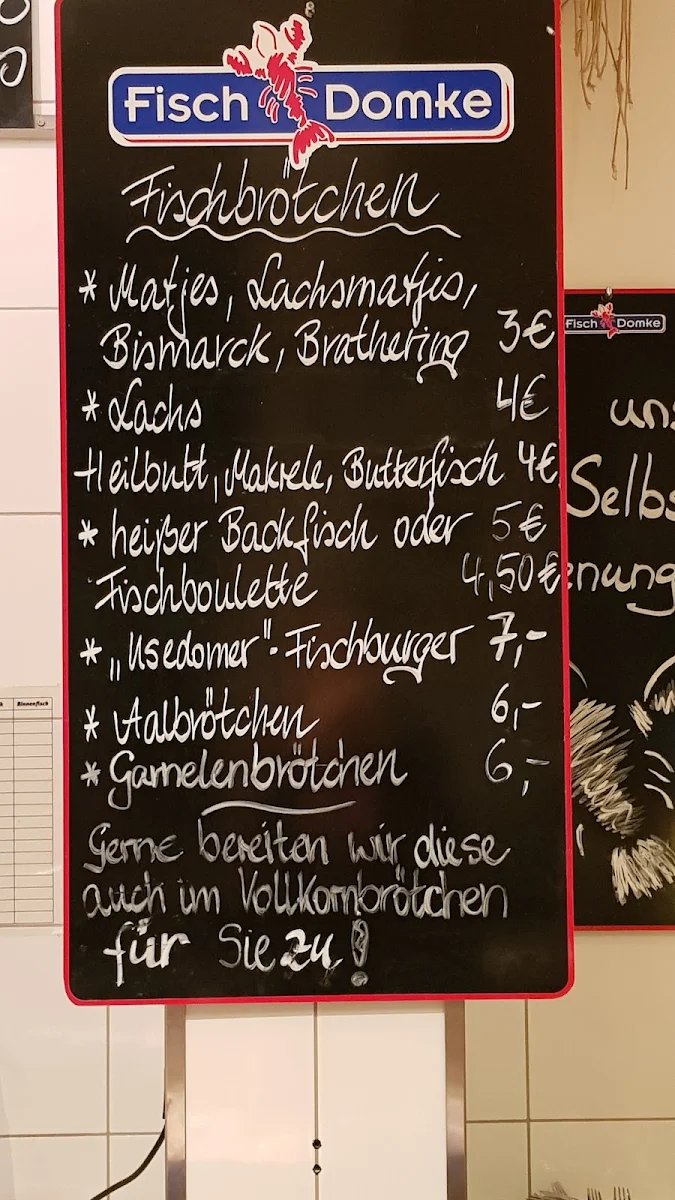 Fisch Domke
Fischbrötchen
* Matjes, Lachsmatjis,
Bismarck, Brathering 3€
* Lachs 4€
Heilbutt, Makrele, Butterfisch 4€
* heißer Backfisch oder 5€
Fischboulette 4,50€
* „Usedomer"-Fischburger 7,-
* Aalbrötchen 6,-
* Garnelenbrötchen 6,-
Gerne bereiten wir diese
auch im Vollkornbrötchen
für Sie zu!
Fisch Domke
uns
Selbs
enung
Binnenfisch